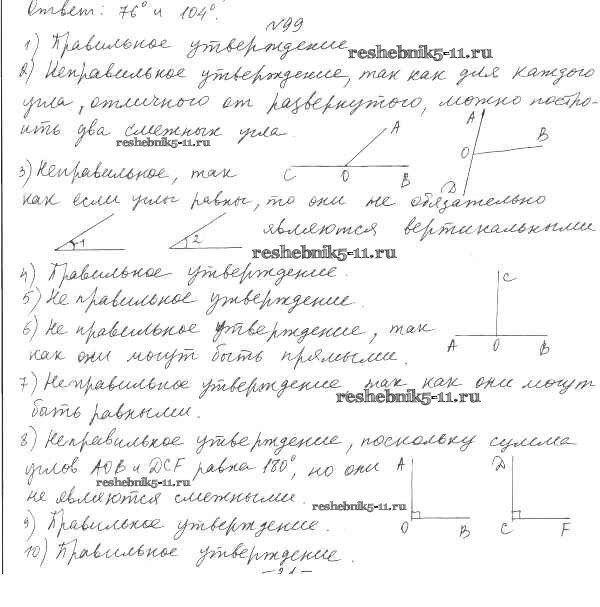 Ответ: 76° и 104°.
N99
1) Правильное утверждение
reshebnik5-11.ru
2) Неправильное утверждение, так как для каждого
угла, отличного от развернутого, можно постро-
ить два смежных угла.
reshebnik5-11.ru
A
C O B
A
O B
D
3) Неправильное, так
как если углы равны, то они не обязательно
являются вертикальными
1 2
reshebnik5-11.ru
4) Правильное утверждение.
5) Не правильное утверждение.
6) Не правильное утверждение, так
как они могут быть прямыми.
C
A O B
7) Неправильное утверждение так как они могут
быть равными.
reshebnik5-11.ru
8) Неправильное утверждение, поскольку сумма
углов AOB и DCF равна 180°, но они
не являются смежными.
reshebnik5-11.ru
A D
O B C F
reshebnik5-11.ru
9) Правильное утверждение.
10) Правильное утверждение.